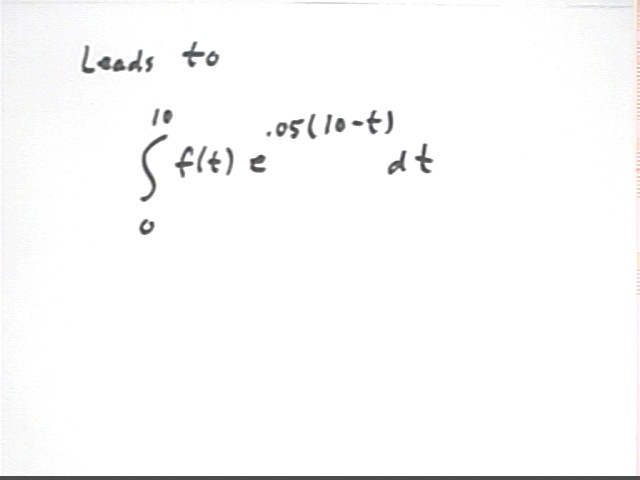 Leads to
∫₀¹⁰ f(t) e^{.05(10-t)} dt